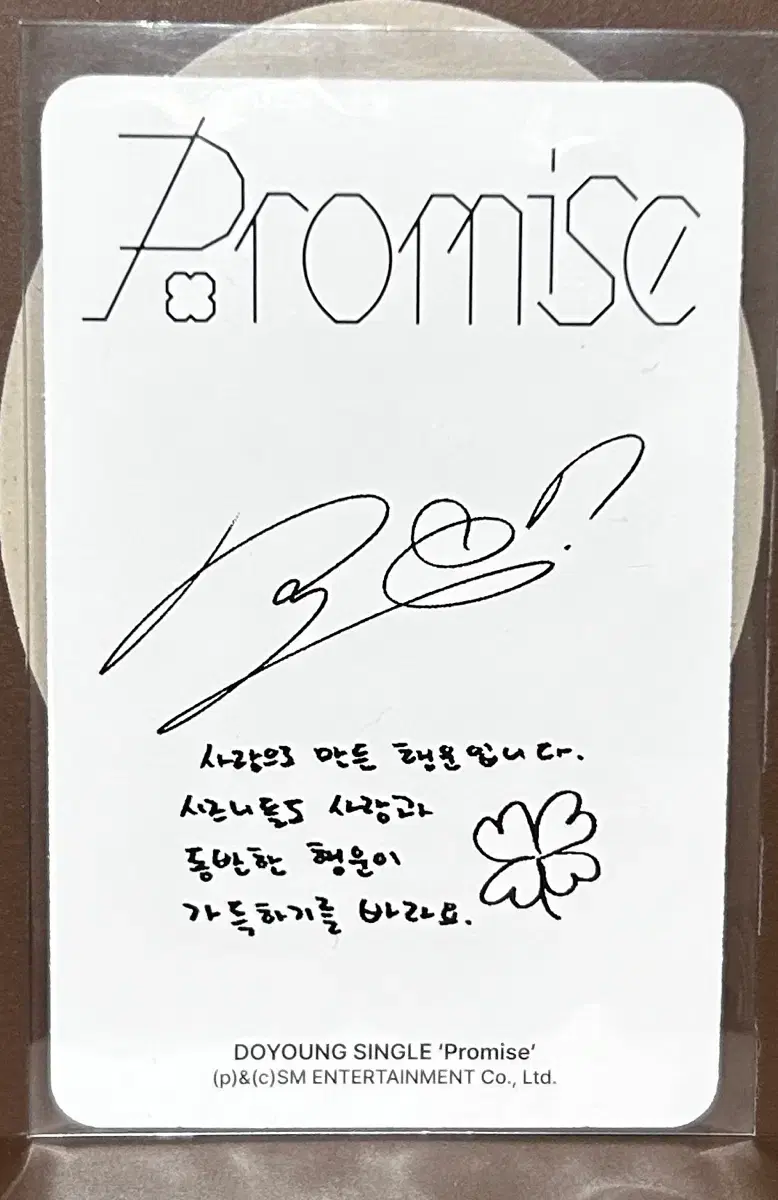 Promise
사랑으로 만든 행운입니다.
시즈니들도 사랑과
동반한 행운이
가득하기를 바라요.
DOYOUNG SINGLE ‘Promise’
(p)&(c)SM ENTERTAINMENT Co., Ltd.